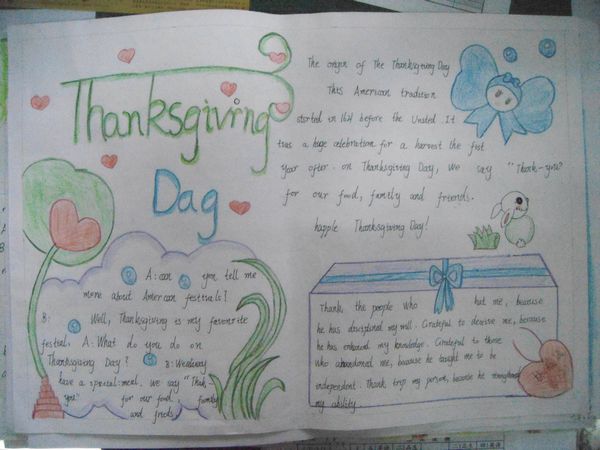 Thanksgiving
Dag
A: can you tell me
more about American festivals?
B: Well, Thanksgiving is my favourite
festival. A: What do you do on
Thanksgiving Day? B: We
have a special meal, we say "Thank
you" for our food, family
and friends.
The origin of The Thanksgiving Day
This American tradition
started in 1621 before the United. It
was a huge celebration for a harvest the fist
year after. on Thanksgiving Day, we say "Thank-you?
for our food, family and friends.
happle Thanksgiving Day!
Thank, the people who hut me, because
he has disciplined my will. Grateful to deceive me, because
he has enhanced my knowledge. Grateful to those
who abandoned me, because he taught me to be
independent. Thank trip my person, because he strengthened
my ability.